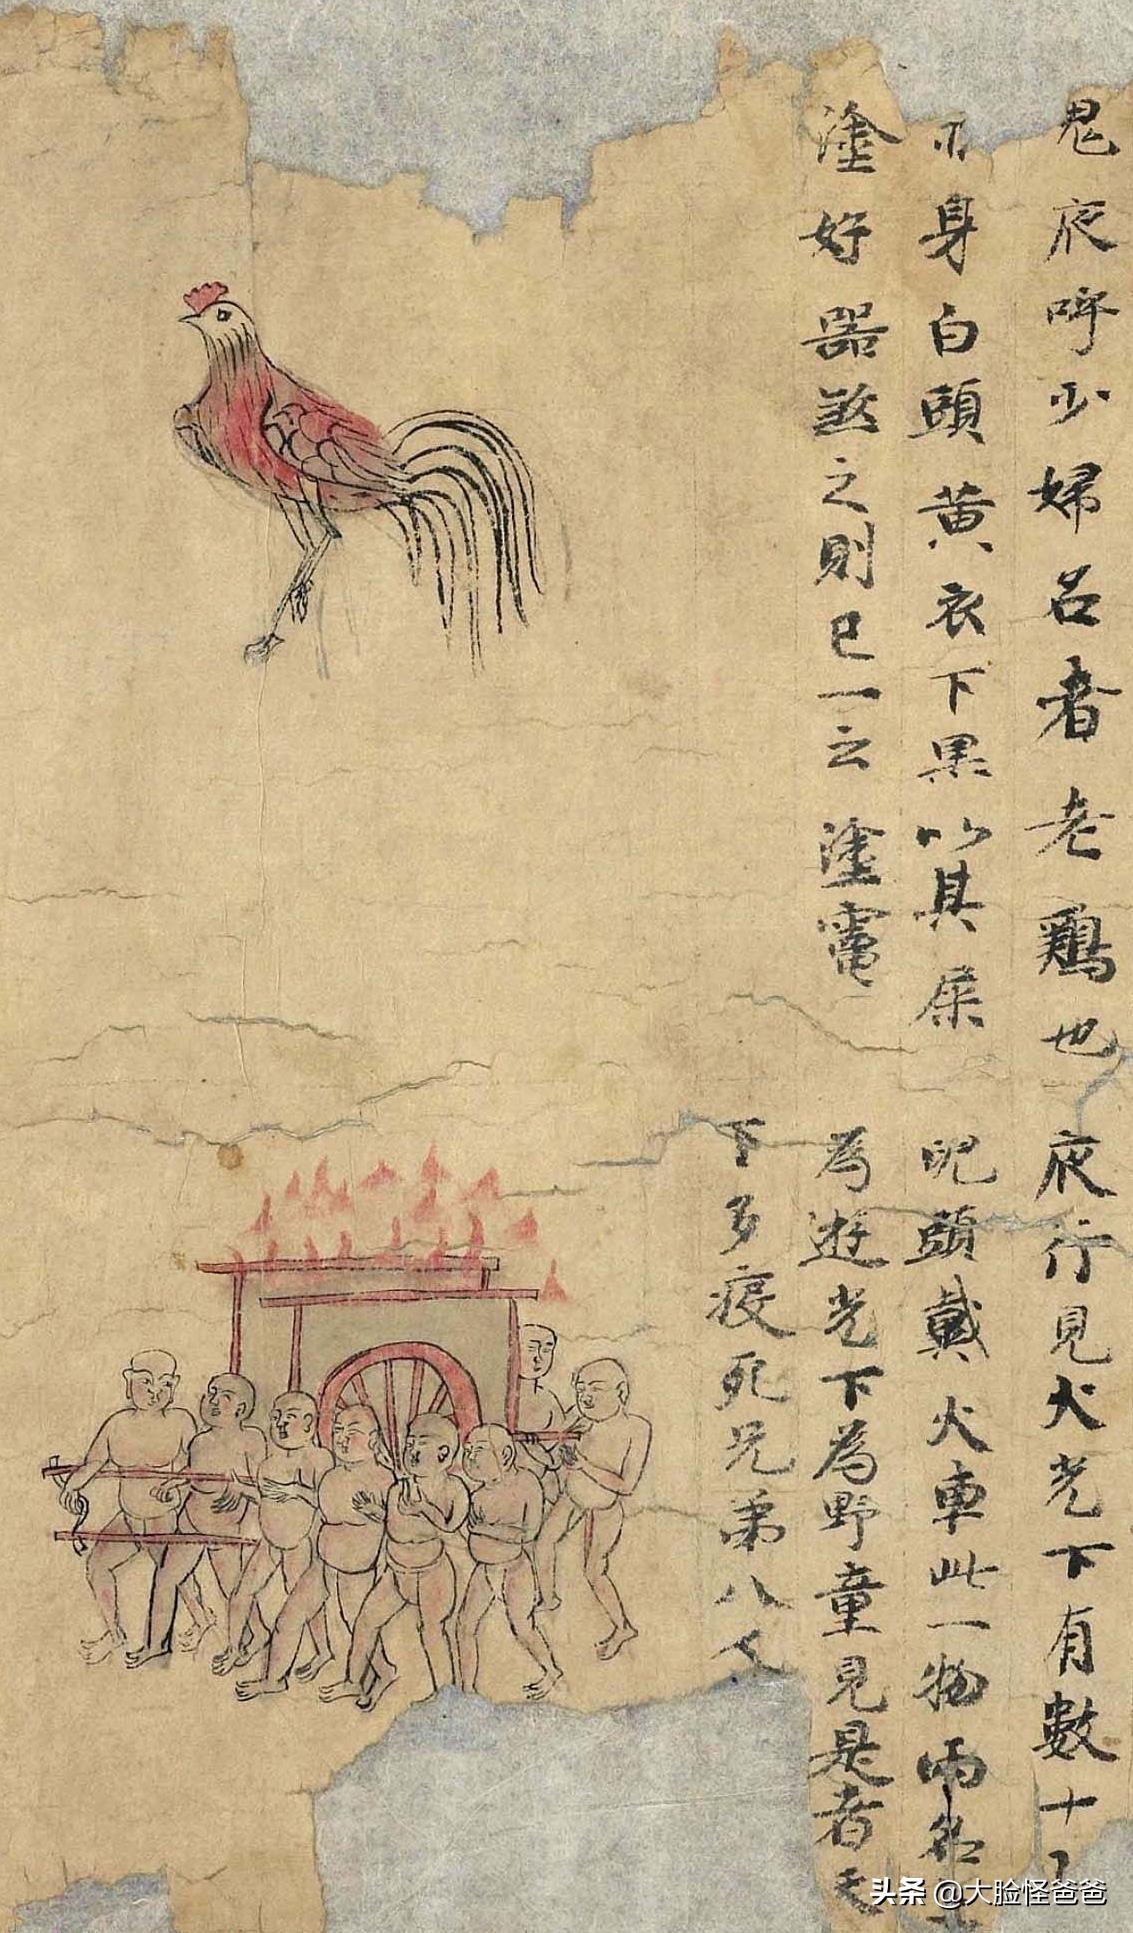 鬼夜呼少婦呂者老鶏也
身白頭黄衣下黒以其屎
塗好器煞之則已一云塗竈
夜行見火光下有數十
兒頭戴火車此一物兩名上
為遊光下為野童見是者天
下多疫死兄弟八人
头条 @大脸怪爸爸